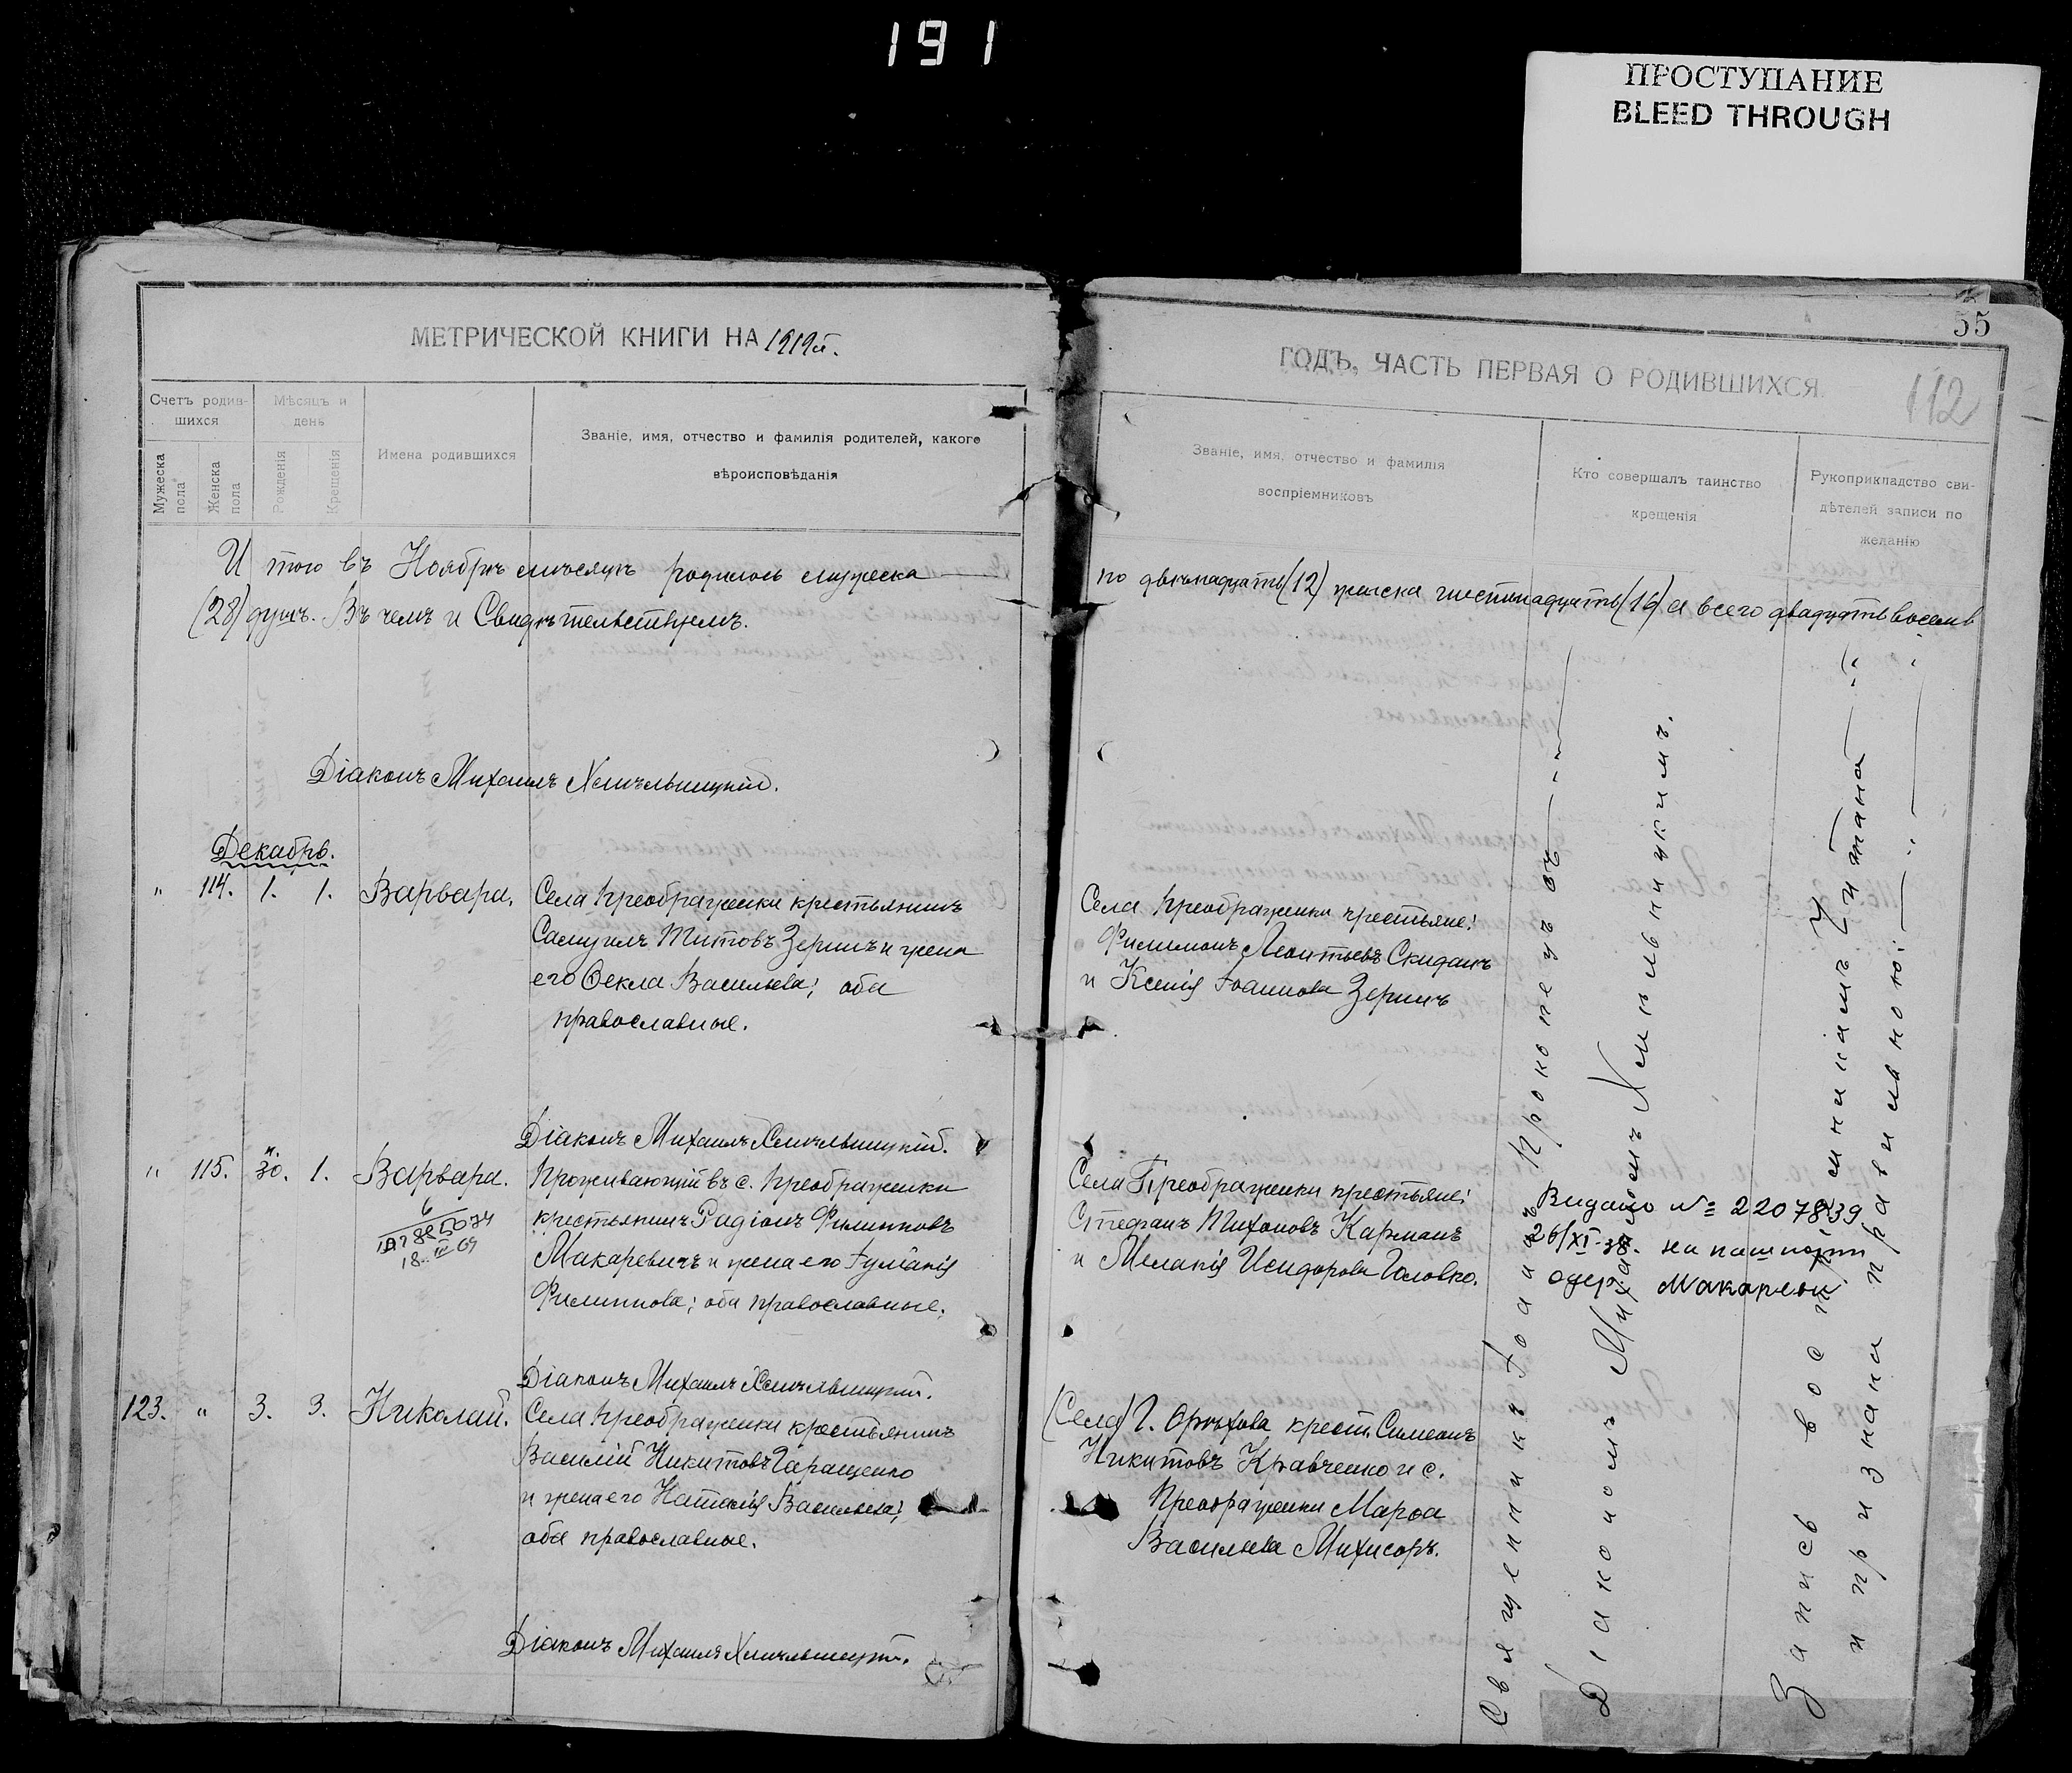 191
ПРОСТУПАНИЕ
BLEED THROUGH
МЕТРИЧЕСКОЙ КНИГИ НА 1919 г.
Счетъ родив-
шихся
Мѣсяцъ и
день
Мужеска
пола
Женска
пола
Рожденія
Крещенія
Имена родившихся
Званіе, имя, отчество и фамилія родителей, какого
вѣроисповѣданія
И того въ Ноябрѣ мѣсяцѣ родилось мужеска
(28) душъ. Въ чемъ и Свидѣтельствуемъ.
Діаконъ Михаилъ Хмѣльницкій.
Декабрь.
" 114. 1. 1. Варвара. Села Преображенки крестьянинъ
Самуилъ Титовъ Зеринъ и жена
его Ѳекла Васильева; оба
православные.
Діаконъ Михаилъ Хмѣльницкій.
" 115. н. 30. 1. Варвара. Проживающій въ с. Преображенки
крестьянинъ Радіонъ Филипповъ
Макаревичъ и жена его Іуліанія
Филиппова; оба православные.
18. III 69
Діаконъ Михаилъ Хмѣльницкій.
123. " 3. 3. Николай. Села Преображенки крестьянинъ
Василій Никитовъ Гаращенко
и жена его Наталія Васильева;
оба православные.
Діаконъ Михаилъ Хмѣльницкій.
55
ГОДЪ, ЧАСТЬ ПЕРВАЯ О РОДИВШИХСЯ.
112
Званіе, имя, отчество и фамилія
воспріемниковъ
Кто совершалъ таинство
крещенія
Рукоприкладство сви-
дѣтелей записи по
желанію
по двѣнадцать (12) женска шестнадцать (16) а всего двадцать восемь
Села Преображенки крестьяне:
Филимонъ Леонтьевъ Скиданъ
и Ксенія Іоаннова Зеринъ
Села Преображенки крестьяне:
Стефанъ Тихоновъ Карманъ
и Меланія Исидорова Головко.
Видано № 2207839
26/XI-38. на пашпорт
одер. Макаревич
(Села) Г. Орѣхова крест. Симеонъ
Никитовъ Кравченко и с.
Преображенки Марѳа
Васильева
Священникъ Іоаннъ Прокопецъ съ
Діакономъ Михаиломъ Хмѣльницкимъ.
Запись воспріемникамъ читана
и признана правильной